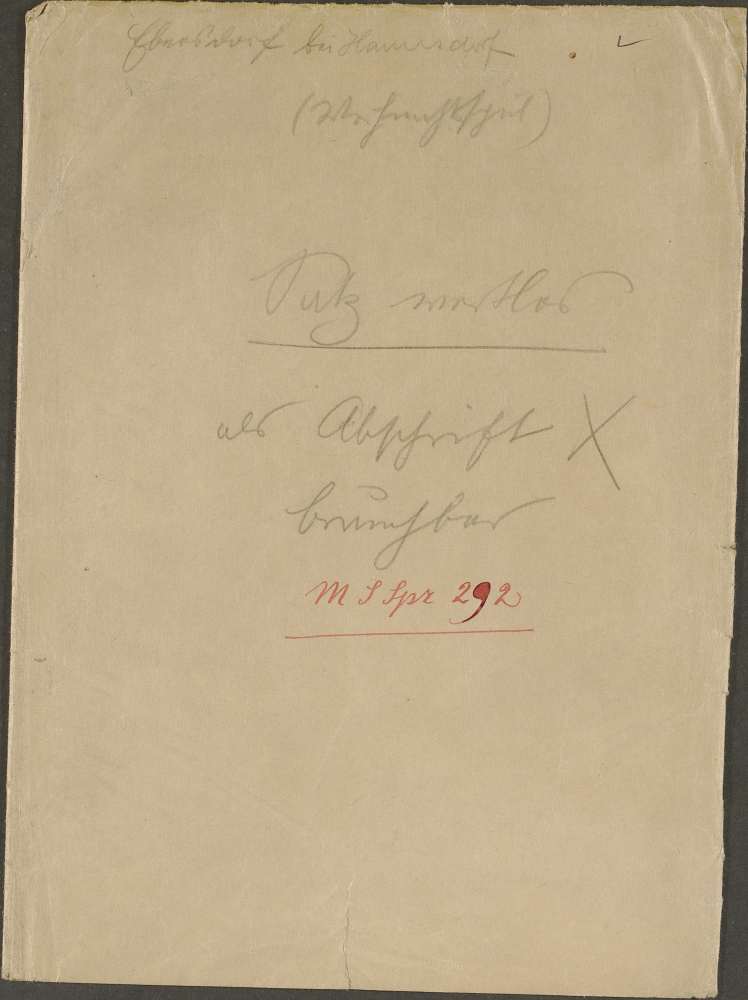 Ebersdorf bei
(Weihnachtsspiel)
Satz wertlos
als Abschrift X
brauchbar
M S Spr 292